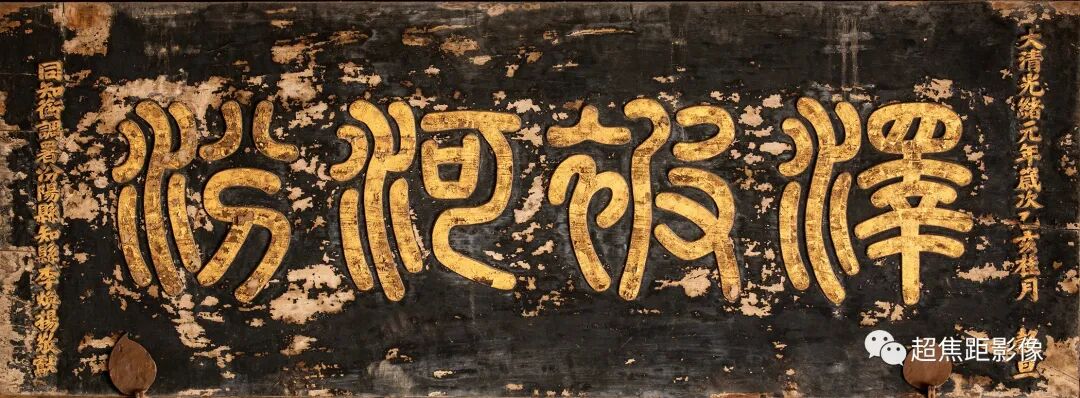 大清光緒元年歲次乙亥桂月 穀旦
澤被河汾
同知銜調署汾陽縣知縣李揚敬獻
超焦距影像